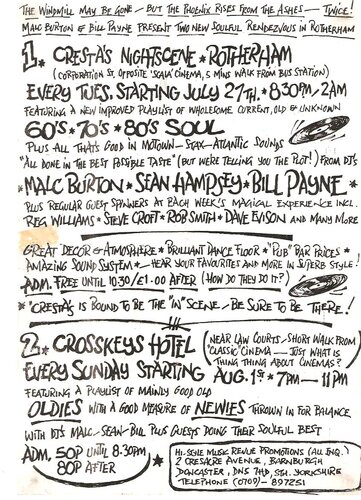 THE WINDMILL MAY BE GONE - BUT THE PHOENIX RISES FROM THE ASHES - TWICE!
MALC BURTON & BILL PAYNE PRESENT TWO NEW SOULFUL RENDEZVOUS IN ROTHERHAM
1. CRESTA'S NIGHTSCENE * ROTHERHAM
(CORPORATION ST, OPPOSITE 'SCALA' CINEMA, 5 MINS WALK FROM BUS STATION)
EVERY TUES, STARTING JULY 27TH. * 8.30PM/2AM
FEATURING A NEW IMPROVED PLAYLIST OF WHOLESOME CURRENT, OLD & UNKNOWN
60'S * 70'S * 80'S SOUL
PLUS ALL THAT'S GOOD IN MOTOWN - STAX - ATLANTIC SOUNDS
"ALL DONE IN THE BEST POSSIBLE TASTE" (BUT WE'RE TELLING YOU THE PLOT!) FROM DJ'S
* MALC BURTON * SEAN HAMPSEY * BILL PAYNE *
PLUS REGULAR GUEST SPINNERS AT EACH WEEK'S MAGICAL EXPERIENCE INCL.
REG WILLIAMS * STEVE CROFT * ROB SMITH * DAVE EVISON AND MANY MORE
GREAT DECOR & ATMOSPHERE * BRILLIANT DANCE FLOOR * "PUB" BAR PRICES *
AMAZING SOUND SYSTEM * - HEAR YOUR FAVOURITES AND MORE IN SUPERB STYLE!
ADM. FREE UNTIL 10.30/£1.00 AFTER (HOW DO THEY DO IT?)
* "CRESTA'S IS BOUND TO BE THE "IN" SCENE - BE SURE TO BE THERE!
2. CROSSKEYS HOTEL
(NEAR LAW COURTS, SHORT WALK FROM
'CLASSIC' CINEMA - JUST WHAT IS
THING THING ABOUT CINEMAS?)
EVERY SUNDAY STARTING AUG. 1ST * 7PM - 11PM
FEATURING A PLAYLIST OF MAINLY GOOD OLD
OLDIES WITH A GOOD MEASURE OF NEWIES THROWN IN FOR BALANCE
WITH DJ'S MALC - SEAN - BILL PLUS GUESTS DOING THEIR SOULFUL BEST
ADM. 50P UNTIL 8.30PM
80P AFTER
HI-STYLE MUSIC REVUE PROMOTIONS (ALL ENQ.)
2 CRESACRE AVENUE, BARNBURGH
DONCASTER, DN5 7HD, STH. YORKSHIRE
TELEPHONE (0709) - 897251